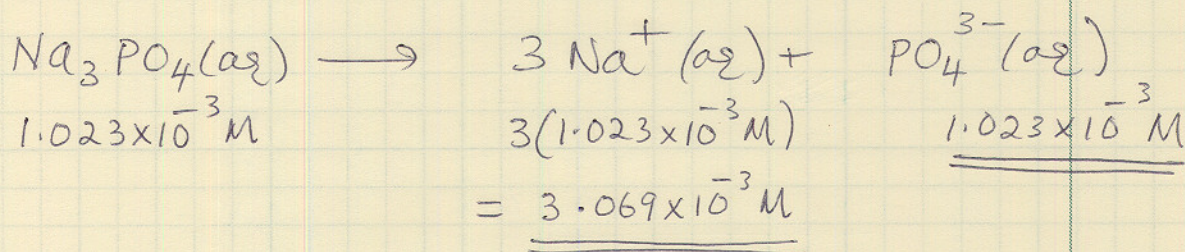 Na₃PO₄(aq) ⟶ 3 Na⁺(aq) + PO₄³⁻(aq)
1.023x10⁻³M 3(1.023x10⁻³M) 1.023x10⁻³M
= 3.069x10⁻³M